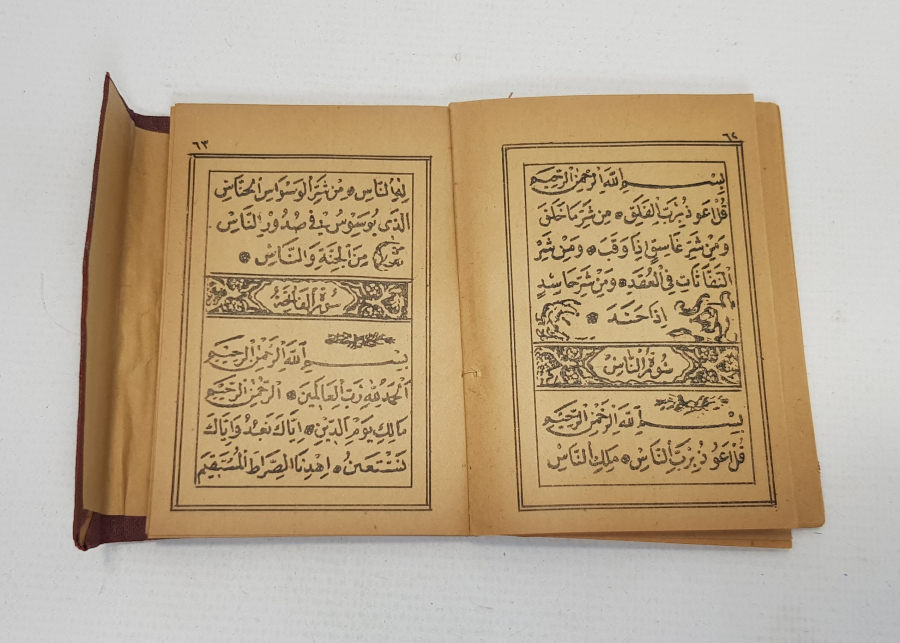 ٦٢
بِسْمِ اللّٰهِ الرَّحْمٰنِ الرَّحِيمِ
قُلْ اَعُوذُ بِرَبِّ الْفَلَقِ ❁ مِنْ شَرِّ مَا خَلَقَ
وَمِنْ شَرِّ غَاسِقٍ اِذَا وَقَبَ ❁ وَمِنْ شَرِّ
النَّفَّاثَاتِ فِي الْعُقَدِ ❁ وَمِنْ شَرِّ حَاسِدٍ
اِذَا حَسَدَ ❁
سُورَةُ النَّاسِ
بِسْمِ اللّٰهِ الرَّحْمٰنِ الرَّحِيمِ
قُلْ اَعُوذُ بِرَبِّ النَّاسِ ❁ مَلِكِ النَّاسِ
٦٣
اِلٰهِ النَّاسِ ❁ مِنْ شَرِّ الْوَسْوَاسِ الْخَنَّاسِ
الَّذِي يُوَسْوِسُ فِي صُدُورِ النَّاسِ
مِنَ الْجِنَّةِ وَالنَّاسِ ❁
سُورَةُ الْفَاتِحَةِ
بِسْمِ اللّٰهِ الرَّحْمٰنِ الرَّحِيمِ
اَلْحَمْدُ لِلّٰهِ رَبِّ الْعَالَمِينَ ❁ اَلرَّحْمٰنِ الرَّحِيمِ
مَالِكِ يَوْمِ الدِّينِ ❁ اِيَّاكَ نَعْبُدُ وَاِيَّاكَ
نَسْتَعِينُ ❁ اِهْدِنَا الصِّرَاطَ الْمُسْتَقِيمَ